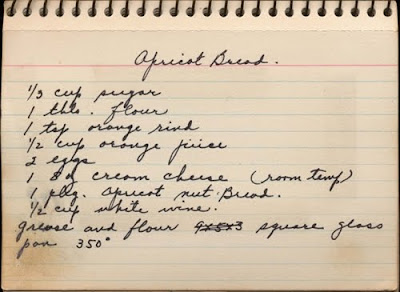 Apricot Bread.
1/3 cup sugar
1 tbls. flour
1 tsp orange rind
1/2 cup orange juice
2 eggs
1 8oz cream cheese (room temp)
1 pkg. Apricot nut Bread.
1/2 cup white wine.
grease and flour 9x5x3 square glass
pan 350°